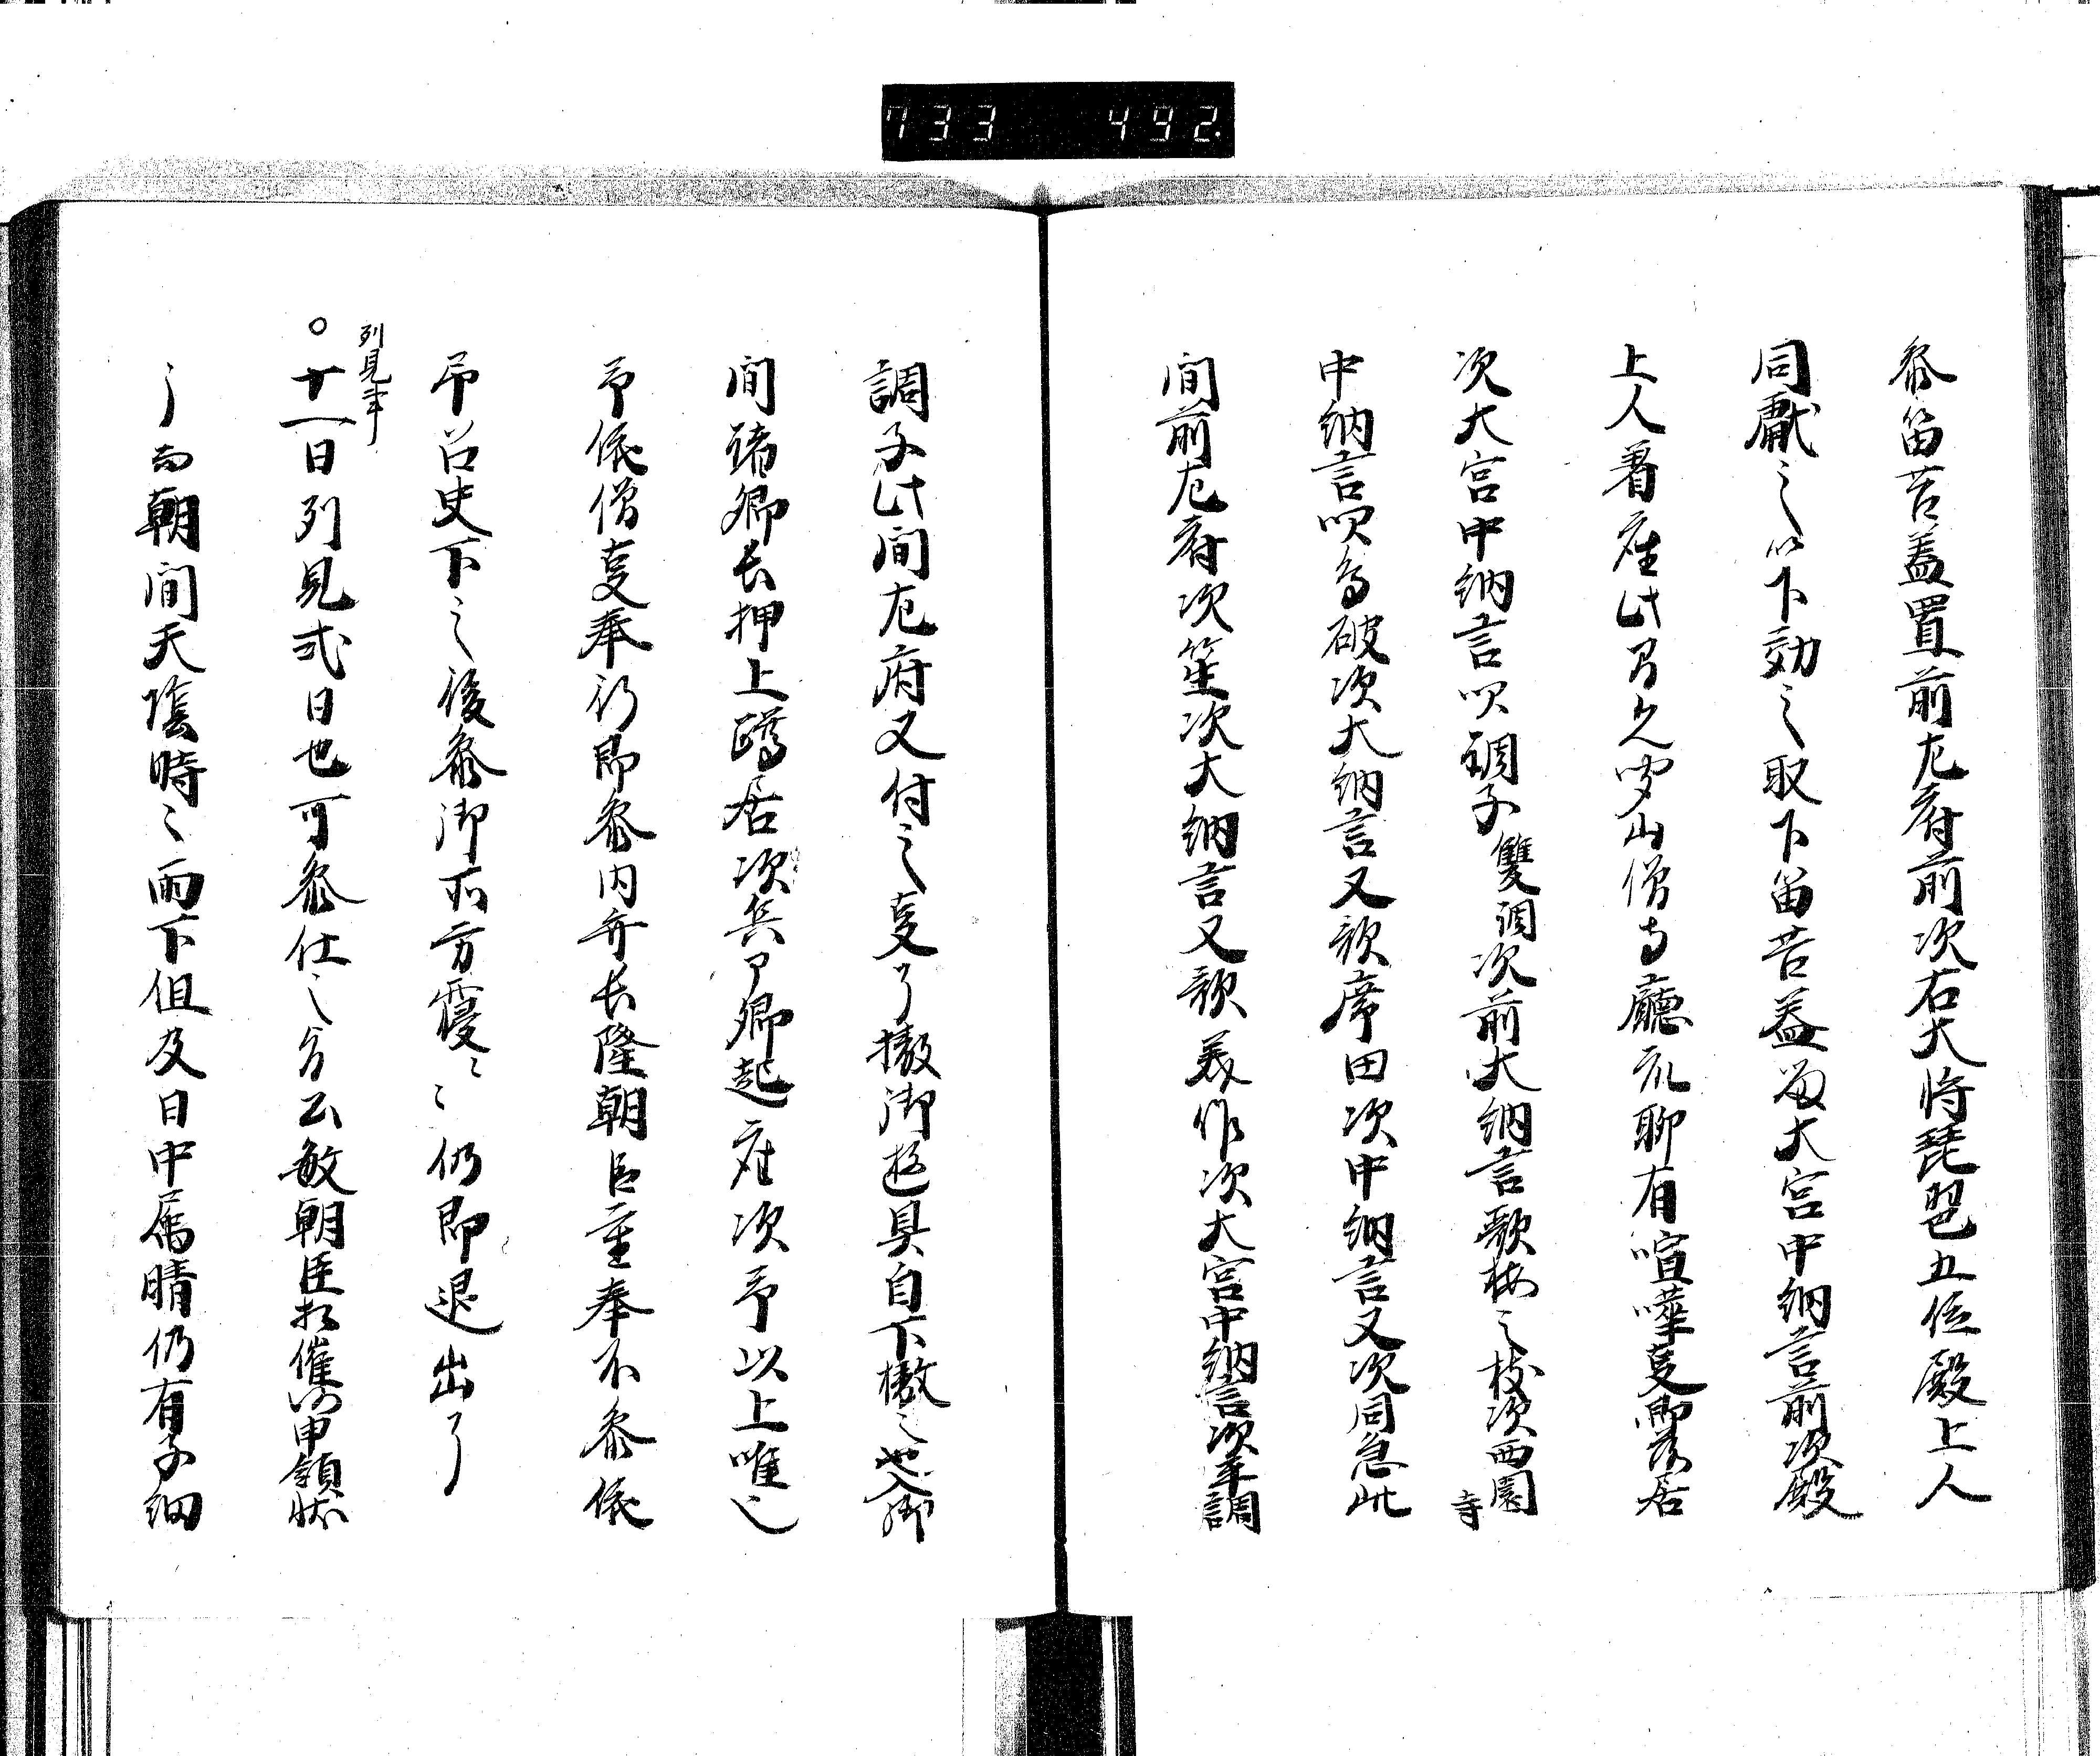 733 492.
参笛筥盖置前左府前次右大将琵琶五位殿上人
同献之以下効之取下笛筥盖為大宮中納言前次殿
上人着座此間久定山僧与廳礼聊有喧嘩事即落居
次大宮中納言吹調子雙調次前大納言歌梅之枝次西園寺
中納言吹鳥破次大納言又歌席田次中納言又次同急此
間前左府次笙次大納言又歌美作次大宮中納言次平調
調子此間左府又付之事了撤御遊具自下撤之也入御
間諸卿長押上蹲居次兵了卿起座次予以上唯之
予依僧事奉行即参内弁長隆朝臣重奉不参依
予召史下之後参御所方寝ミミ仍即退出了
列見事
○十一日列見式日也可参仕之旨公敏朝臣相催仍申領状
了而朝間天陰時々雨下但及日中属晴仍有子細